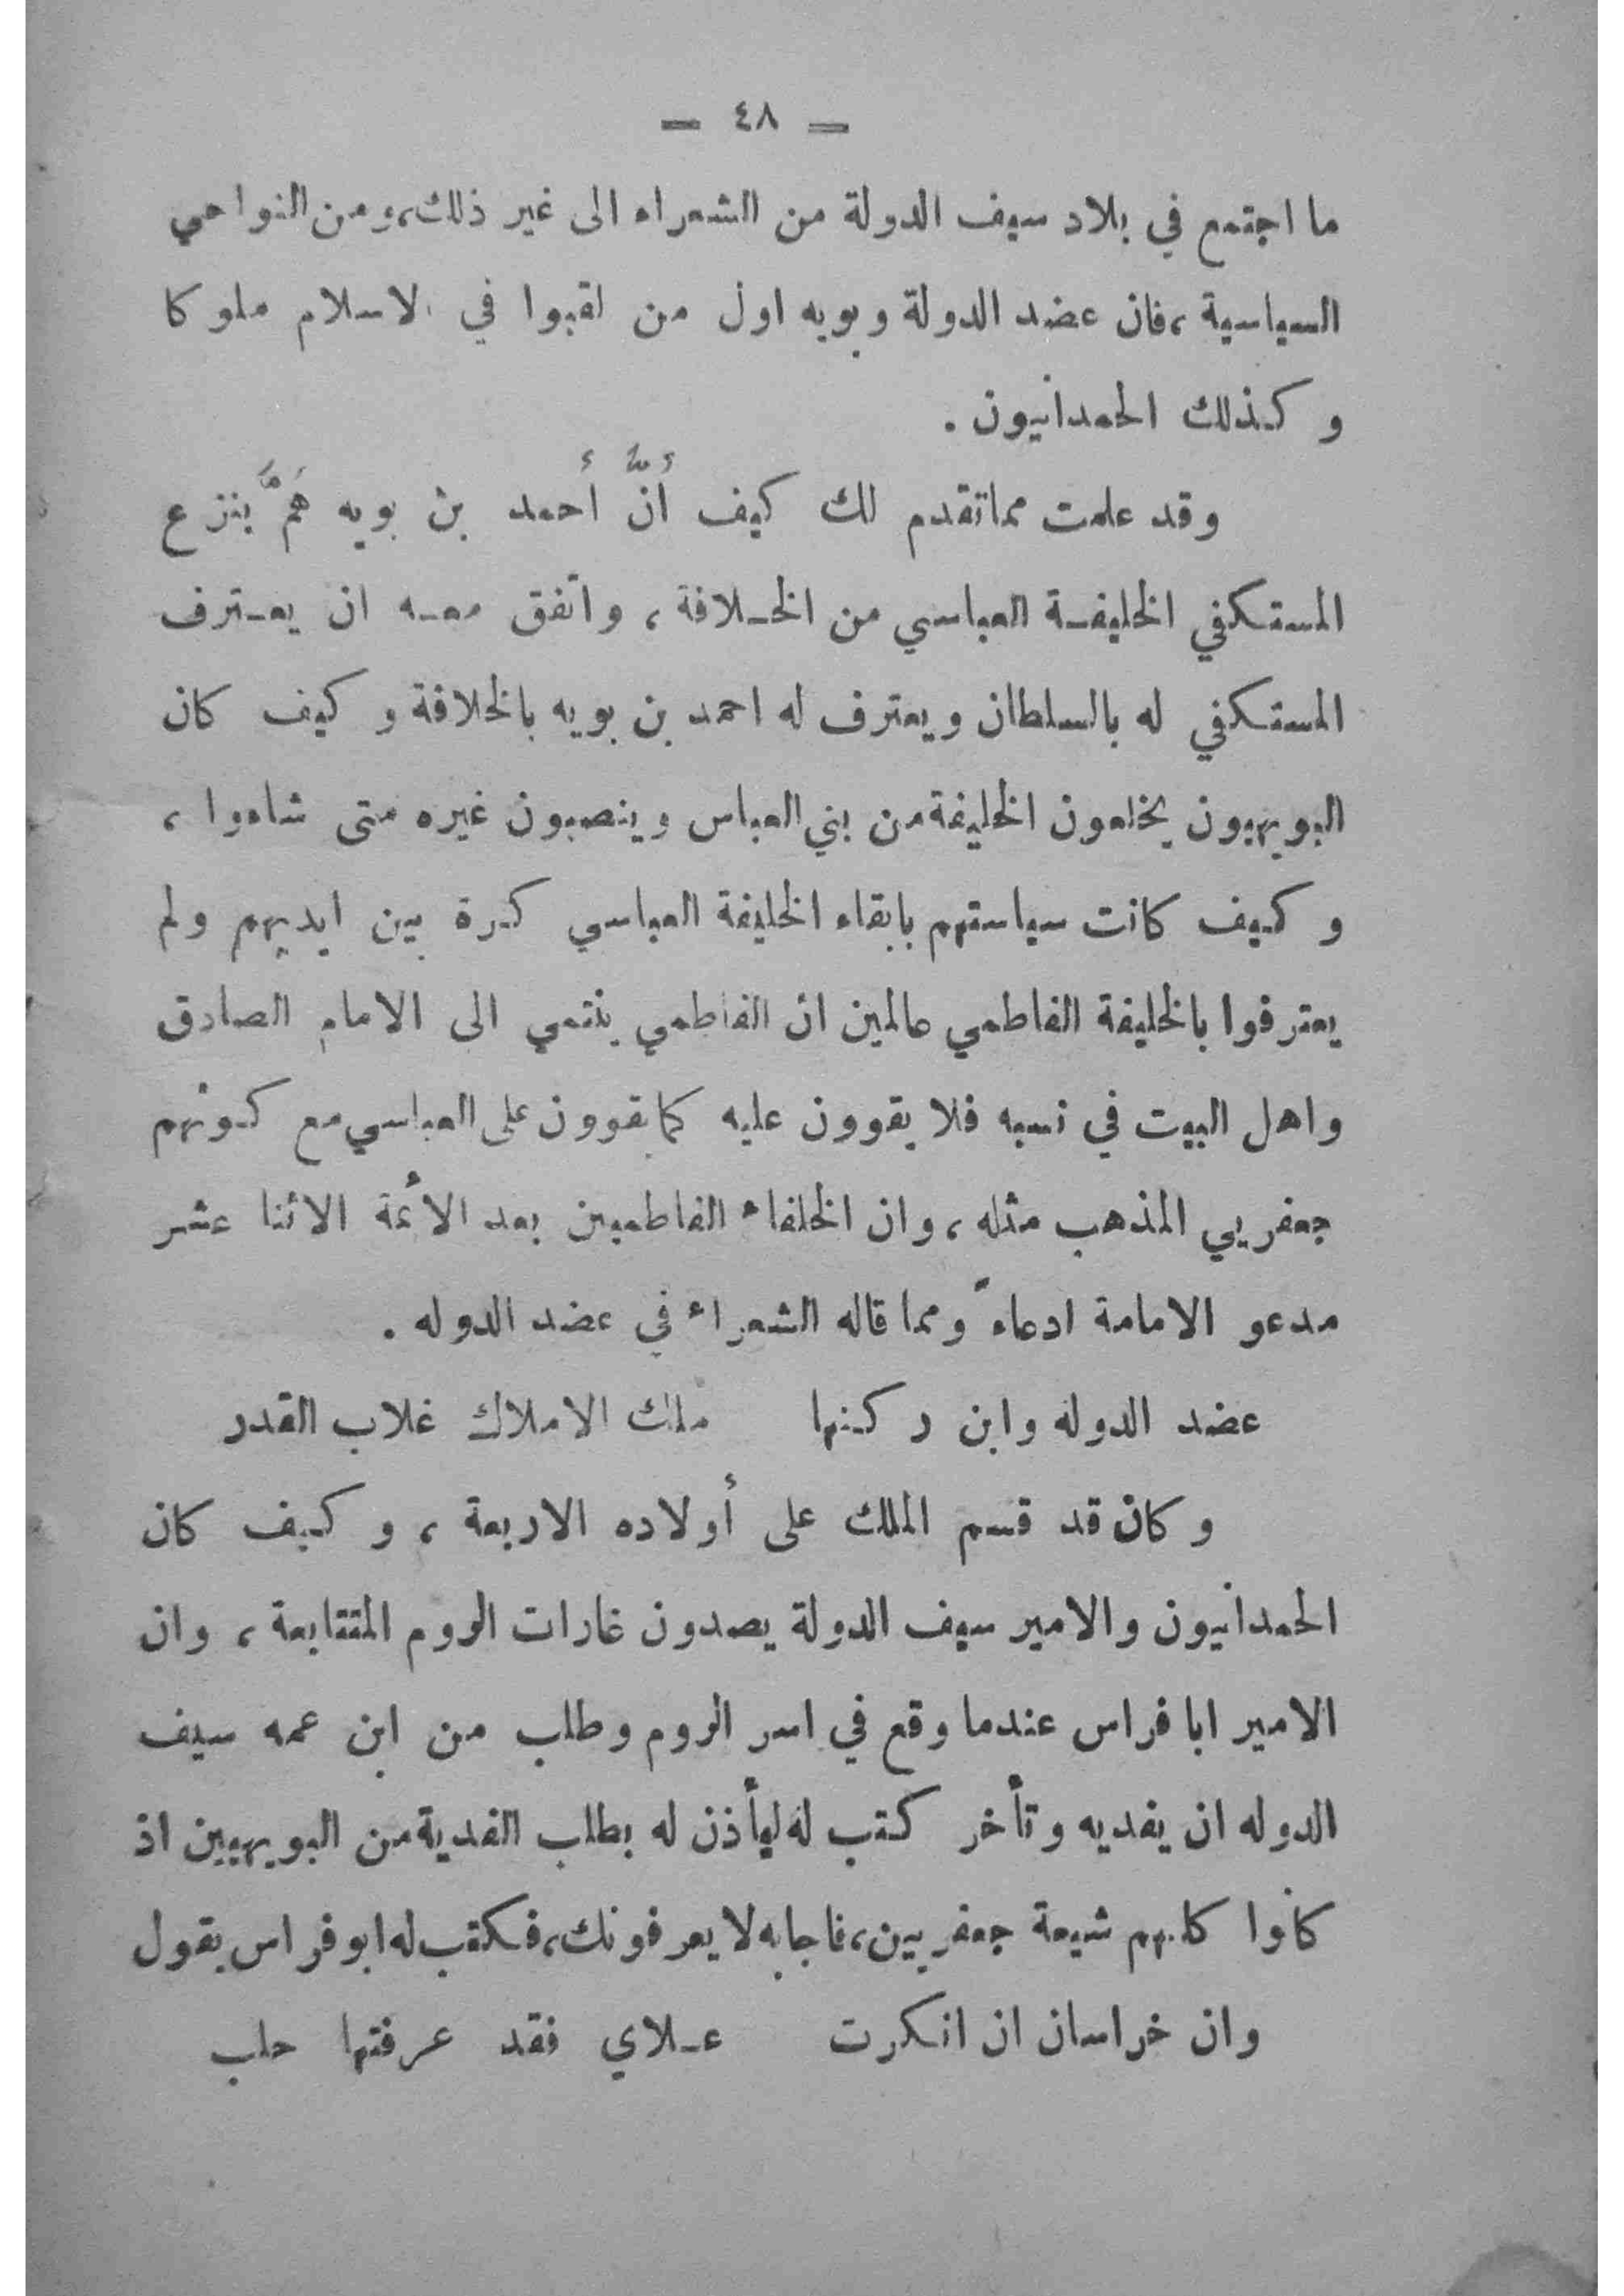 — ٤٨ —
ما اجتمع في بلاد سيف الدولة من الشعراء الى غير ذلك، ومن النواحي
السياسية، فان عضد الدولة وبويه اول من لقبوا في الاسلام ملوكا
وكذلك الحمدانيون .
وقد علمت مماتقدم لك كيف أنَّ أحمد بن بويه هَمَّ بنزع
المستكفي الخليفة العباسي من الخلافة، واتفق معه ان يعترف
المستكفي له بالسلطان ويعترف له احمد بن بويه بالخلافة وكيف كان
البويهيون يخلعون الخليفة من بني العباس وينصبون غيره متى شاءوا،
وكيف كانت سياستهم بابقاء الخليفة العباسي كرة بين ايديهم ولم
يعترفوا بالخليفة الفاطمي عالمين ان الفاطمي ينتمي الى الامام الصادق
واهل البيت في نسبه فلا يقوون عليه كما يقوون على العباسي مع كونهم
جعفريي المذهب مثله، وان الخلفاء الفاطميين بعد الأئمة الاثنا عشر
مدعو الامامة ادعاءً ومما قاله الشعراء في عضد الدوله .
عضد الدوله وابن ركنها ملك الاملاك غلاب القدر
وكان قد قسم الملك على أولاده الاربعة، وكيف كان
الحمدانيون والامير سيف الدولة يصدون غارات الروم المتتابعة، وان
الامير ابا فراس عندما وقع في اسر الروم وطلب من ابن عمه سيف
الدوله ان يفديه وتأخر كتب له ليأذن له بطلب الفدية من البويهيين اذ
كانوا كلهم شيعة جعفريين، فاجابه لا يعرفونك، فكتب له ابو فراس يقول
وان خراسان ان انكرت علاي فقد عرفتها حلب